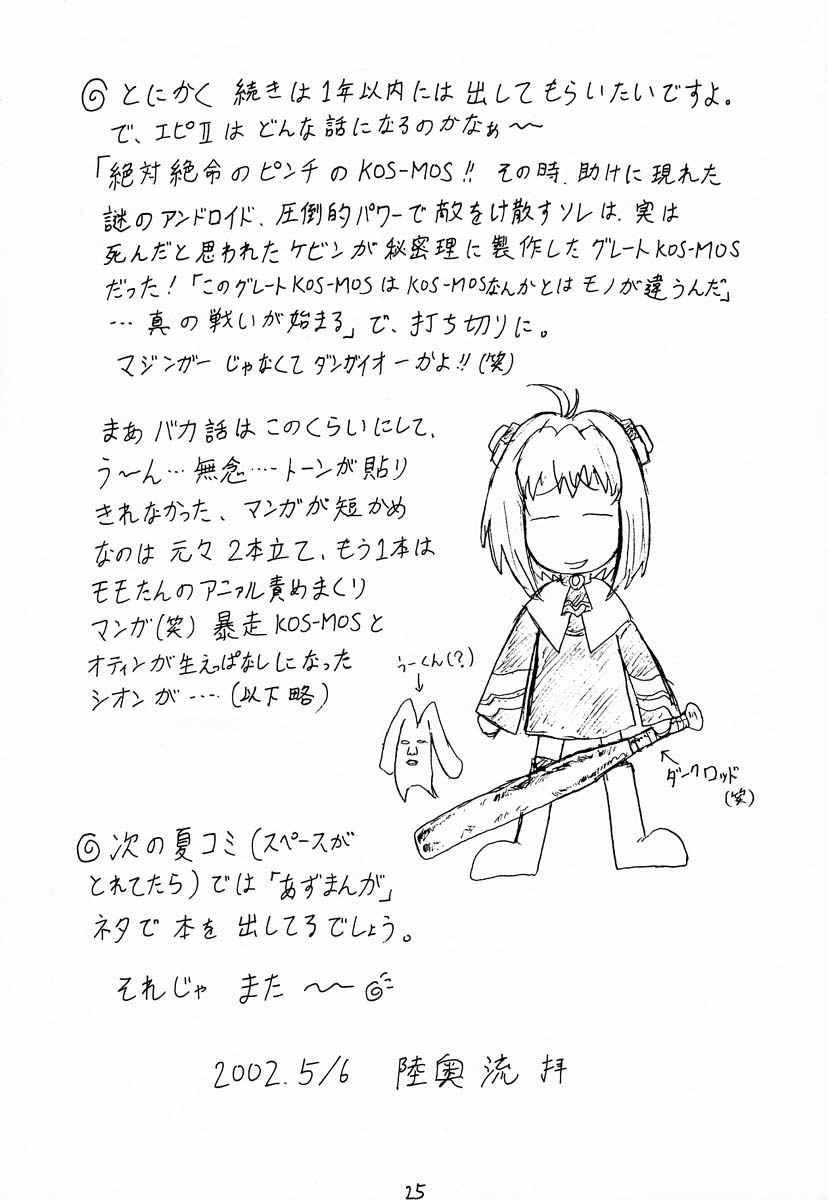 ◎ とにかく 続きは1年以内には 出してもらいたいですよ。
で、エピⅡは どんな話になるのかなぁ〜〜
「絶対絶命のピンチのKOS-MOS!! その時、助けに現れた
謎のアンドロイド、圧倒的パワーで敵をけ散すソレは、実は
死んだと思われたケビンが秘密理に製作したグレートKOS-MOS
だった！「このグレートKOS-MOSはKOS-MOSなんかとはモノが違うんだ」
…真の戦いが始まる」で、打ち切りに。
マジンガーじゃなくてダンガイオーかよ!!(笑)
まあバカ話はこのくらいにして、
う〜ん…無念‥‥トーンが貼り
きれなかった、マンガが短かめ
なのは元々2本立て、もう1本は
モモたんのアニァル責めまくり
マンガ(笑) 暴走KOS-MOSと
オティンが生えっぱなしになった
シオンが‥‥(以下略)
うーくん(?)
ダークロッド
(笑)
◎次の夏コミ(スペースが
とれてたら)では「あずまんが」
ネタで本を出してるでしょう。
それじゃ また 〜〜
2002.5/6 陸奥流 拝
25